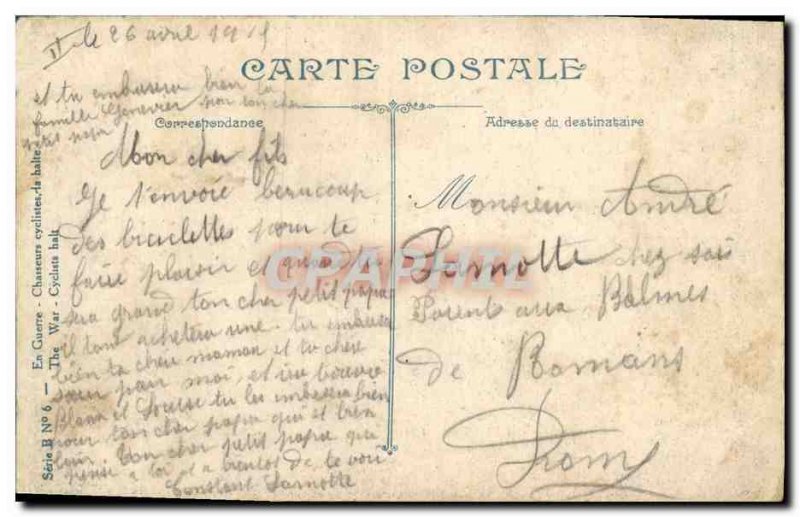 le 26 avril 191
CARTE POSTALE
et tu embrasera bien la
famille Genevier pour ton cher
petit papa
Correspondance
Adresse du destinataire
Mon cher fils
Je t'envoie beaucoup
des biciclettes pour te
faire plaisir et quan tu
sera grand ton cher petit papa
il tant achetera une. tu embrasse
bien ta chère maman et ta chère
sœur pour moi, et
Blanc et Louise tu les embrassera bien
pour ton cher papa qui et bien
loin. Ton cher petit papa qui
pense a toi et a bientot de te voir
Constant Lamotte
Monsieur André
Lamotte chez ses
Parent aux Balmes
de Romans
Drom
Série B N° 6 — En Guerre - Chasseurs cyclistes, la halte
The War - Cyclists halt
CPAPHIL.com